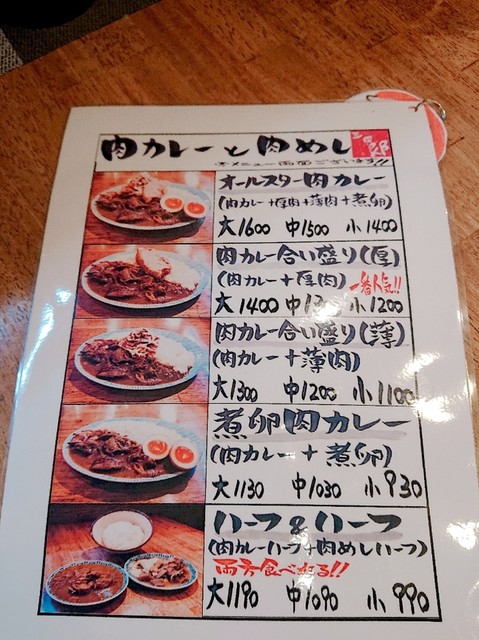 肉カレーと肉めし
※メニュー両面ございます!!
オールスター肉カレー
(肉カレー+厚肉+薄肉+煮卵)
大1600 中1500 小1400
肉カレー合い盛り(厚)
(肉カレー+厚肉) 一番人気!!
大1400 小1200
肉カレー合い盛り(薄)
(肉カレー+薄肉)
大1300 中1200 小1100
煮卵肉カレー
(肉カレー+煮卵)
大1130 中1030 小930
ハーフ&ハーフ
(肉カレーハーフ+肉めしハーフ)
両方食べれる!!
大1190 中1090 小990